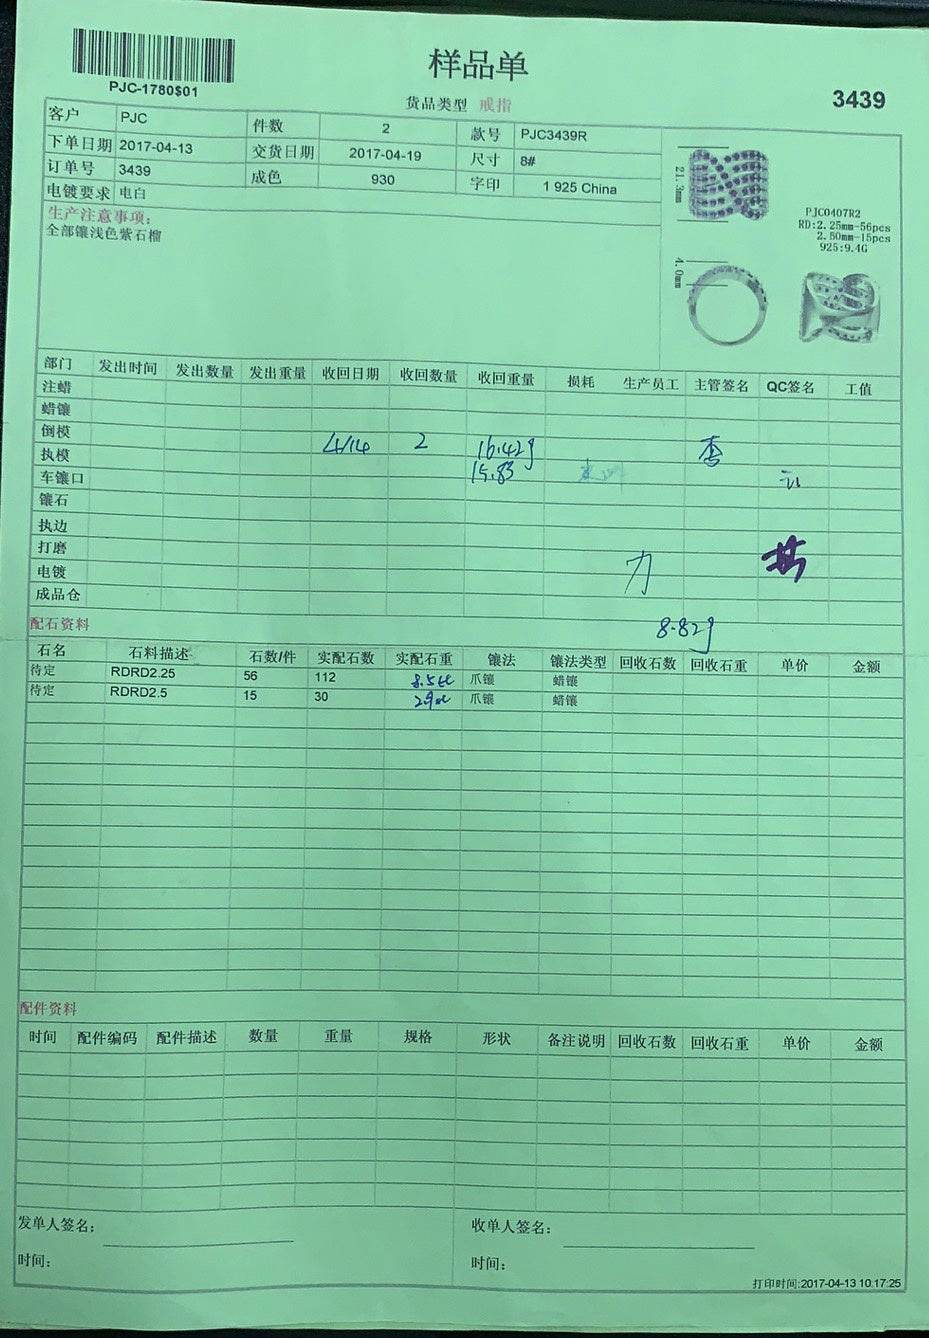 样品单
PJC-1780$01
货品类型 戒指
3439
客户 PJC 件数 2 款号 PJC3439R
下单日期 2017-04-13 交货日期 2017-04-19 尺寸 8#
订单号 3439 成色 930 字印 1 925 China
电镀要求 电白
生产注意事项:
全部镶浅色紫石榴
21.3mm
PJC0407R2
RD:2.25mm-56pcs
2.50mm-15pcs
925:9.4G
4.0mm
部门 发出时间 发出数量 发出重量 收回日期 收回数量 收回重量 损耗 生产员工 主管签名 QC签名 工值
注蜡
蜡镶
倒模
执模 4/14 2 16.42g 李
车镶口 15.83
镶石
执边
打磨
电镀 力
成品仓
配石资料 8.82g
石名 石料描述 石数/件 实配石数 实配石重 镶法 镶法类型 回收石数 回收石重 单价 金额
待定 RDRD2.25 56 112 8.5ct 爪镶 蜡镶
待定 RDRD2.5 15 30 爪镶 蜡镶
配件资料
时间 配件编码 配件描述 数量 重量 规格 形状 备注说明 回收石数 回收石重 单价 金额
发单人签名: 收单人签名:
时间: 时间:
打印时间:2017-04-13 10:17:25